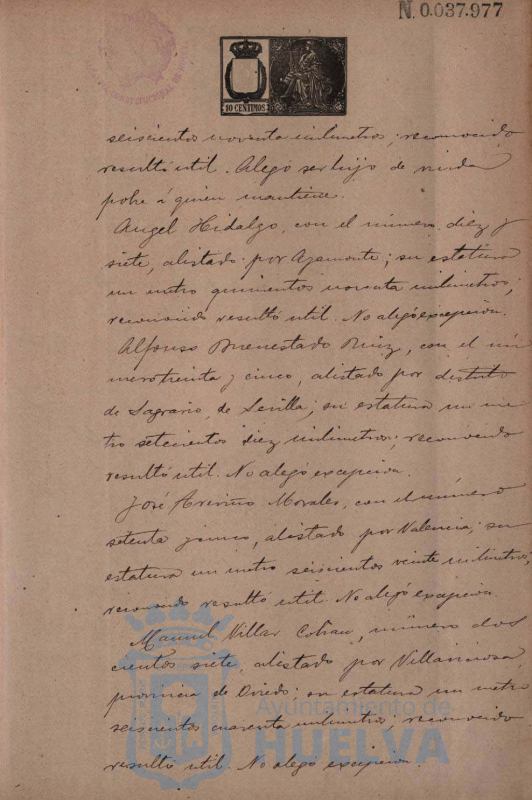 N. 0.037.977
10 CENTIMOS
seiscientos noventa milimetros; reconocido
resultó util. Alegó ser hijo de viuda
pobre á quien mantiene.
Angel Hidalgo, con el número diez y
siete, alistado por Ayamonte; su estatura
un metro quinientos noventa milimetros;
reconocido resultó util. No alegó excepcion.
Alfonso Buenestado Ruiz, con el nú
mero treinta y cinco, alistado por distrito
de Sagrario, de Sevilla; su estatura un me
tro setecientos diez milimetros; reconocido
resultó util. No alegó excepcion.
José Morales, con el número
setenta y cinco, alistado por Valencia; su
estatura un metro seiscientos veinte milimetros;
reconocido resultó util. No alegó excepcion.
Manuel Villar, número dos
cientos siete, alistado por Villaviciosa,
provincia de Oviedo; su estatura un metro
seiscientos cuarenta milimetros; reconocido
resultó util. No alegó excepcion.
Ayuntamiento de
HUELVA